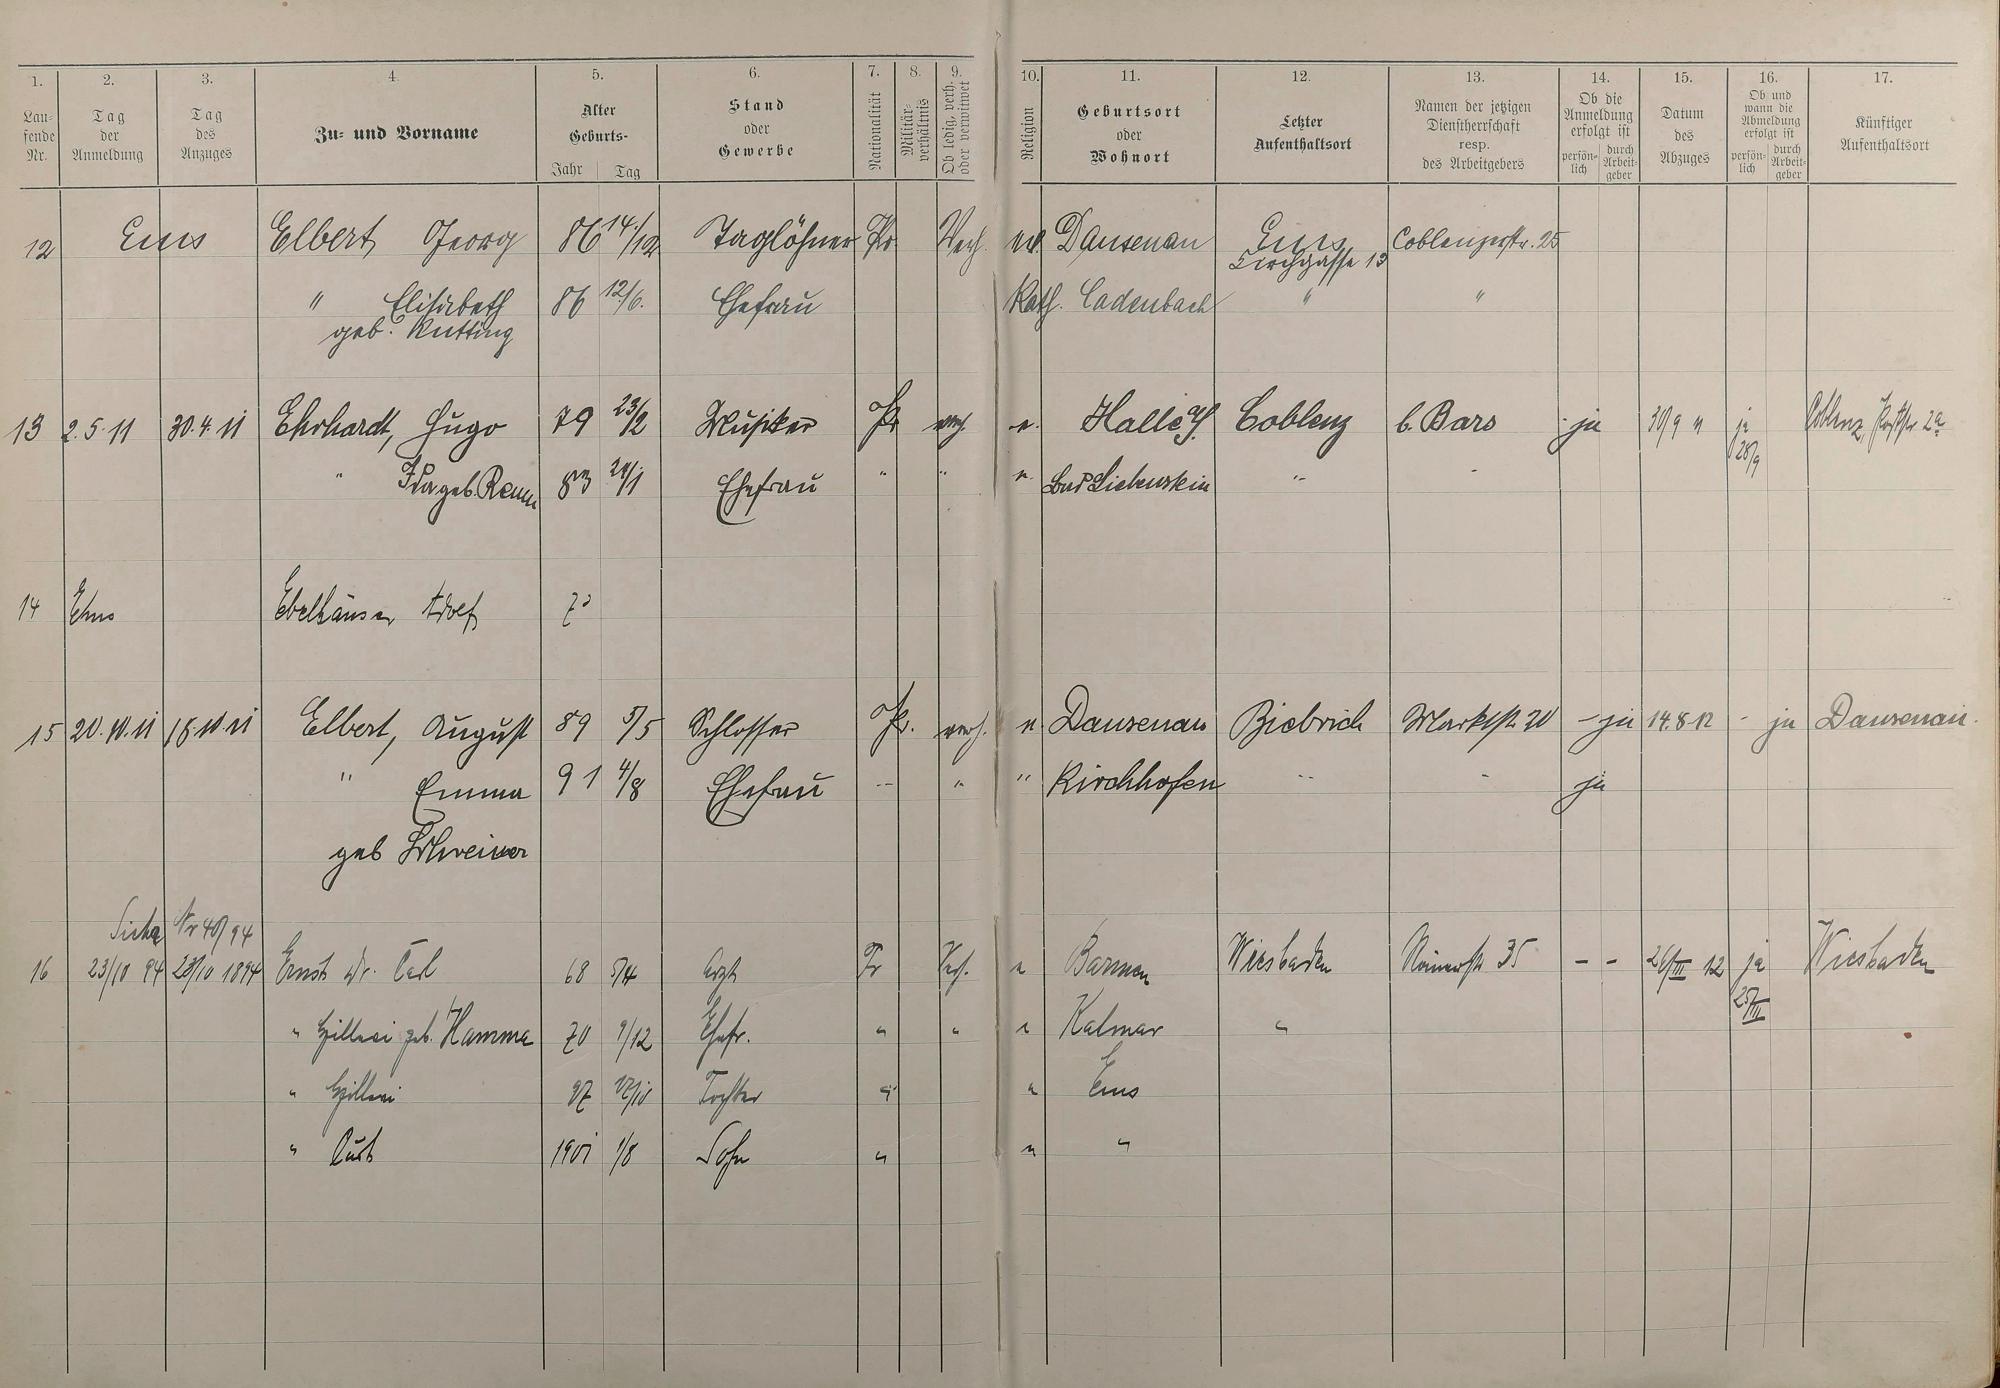 1. 2. 3. 4. 5. 6. 7. 8. 9. 10. 11. 12. 13. 14. 15. 16. 17.
Laufende Nr.
Tag der Anmeldung
Tag des Anzuges
Zu- und Vorname
Alter Geburts- Jahr Tag
Stand oder Gewerbe
Nationalität
Militärverhältnis
Ob ledig, verh. oder verwitwet
Religion
Geburtsort oder Wohnort
Letzter Aufenthaltsort
Namen der jetzigen Dienstherrschaft resp. des Arbeitgebers
Ob die Anmeldung erfolgt ist persönlich durch Arbeitgeber
Datum des Abzuges
Ob und wann die Abmeldung erfolgt ist persönlich durch Arbeitgeber
Künftiger Aufenthaltsort
12 Ems Elbert Georg 86 14/12 Taglöhner Pr. Verh. ev. Dausenau Ems Coblenzerstr. 25
Kirchgasse 13
" Elisabeth 86 12/6. Ehefrau Kath. Cadenbach " "
geb. Kutting
13 2.5.11 30.4.11 Ehrhardt, Hugo 79 23/2 Musiker Pr verh e. Halle Coblenz b. Bars - ja 30/9 11 ja 28/9 Coblenz 2a
" Ida geb. 83 24/1 Ehefrau " " e. Bad Liebenstein " -
14 Ems Ebelhäuser Adolf
15 20.10.11 18.10.11 Elbert, August 89 5/5 Schlosser Pr. verh. e. Dausenau Biebrich Marktstr. 20 - ja 14.8.12 - ja Dausenau.
" Emma 91 4/8 Ehefrau " " " Kirchhofen " - ja
geb Schreiner
Siehe Nr 94
16 23/10 94 23/10 1894 Ernst Dr. Carl 68 5/4 Arzt Pr Verh. e Barmen Wiesbaden Römerstr. 35 - - 26/III 12 ja Wiesbaden
25/III
" geb. Hamma 70 9/12 Ehefr. " " " Kalmar "
" 97 Tochter " " Ems
" Curt 1901 1/8 Sohn " " "